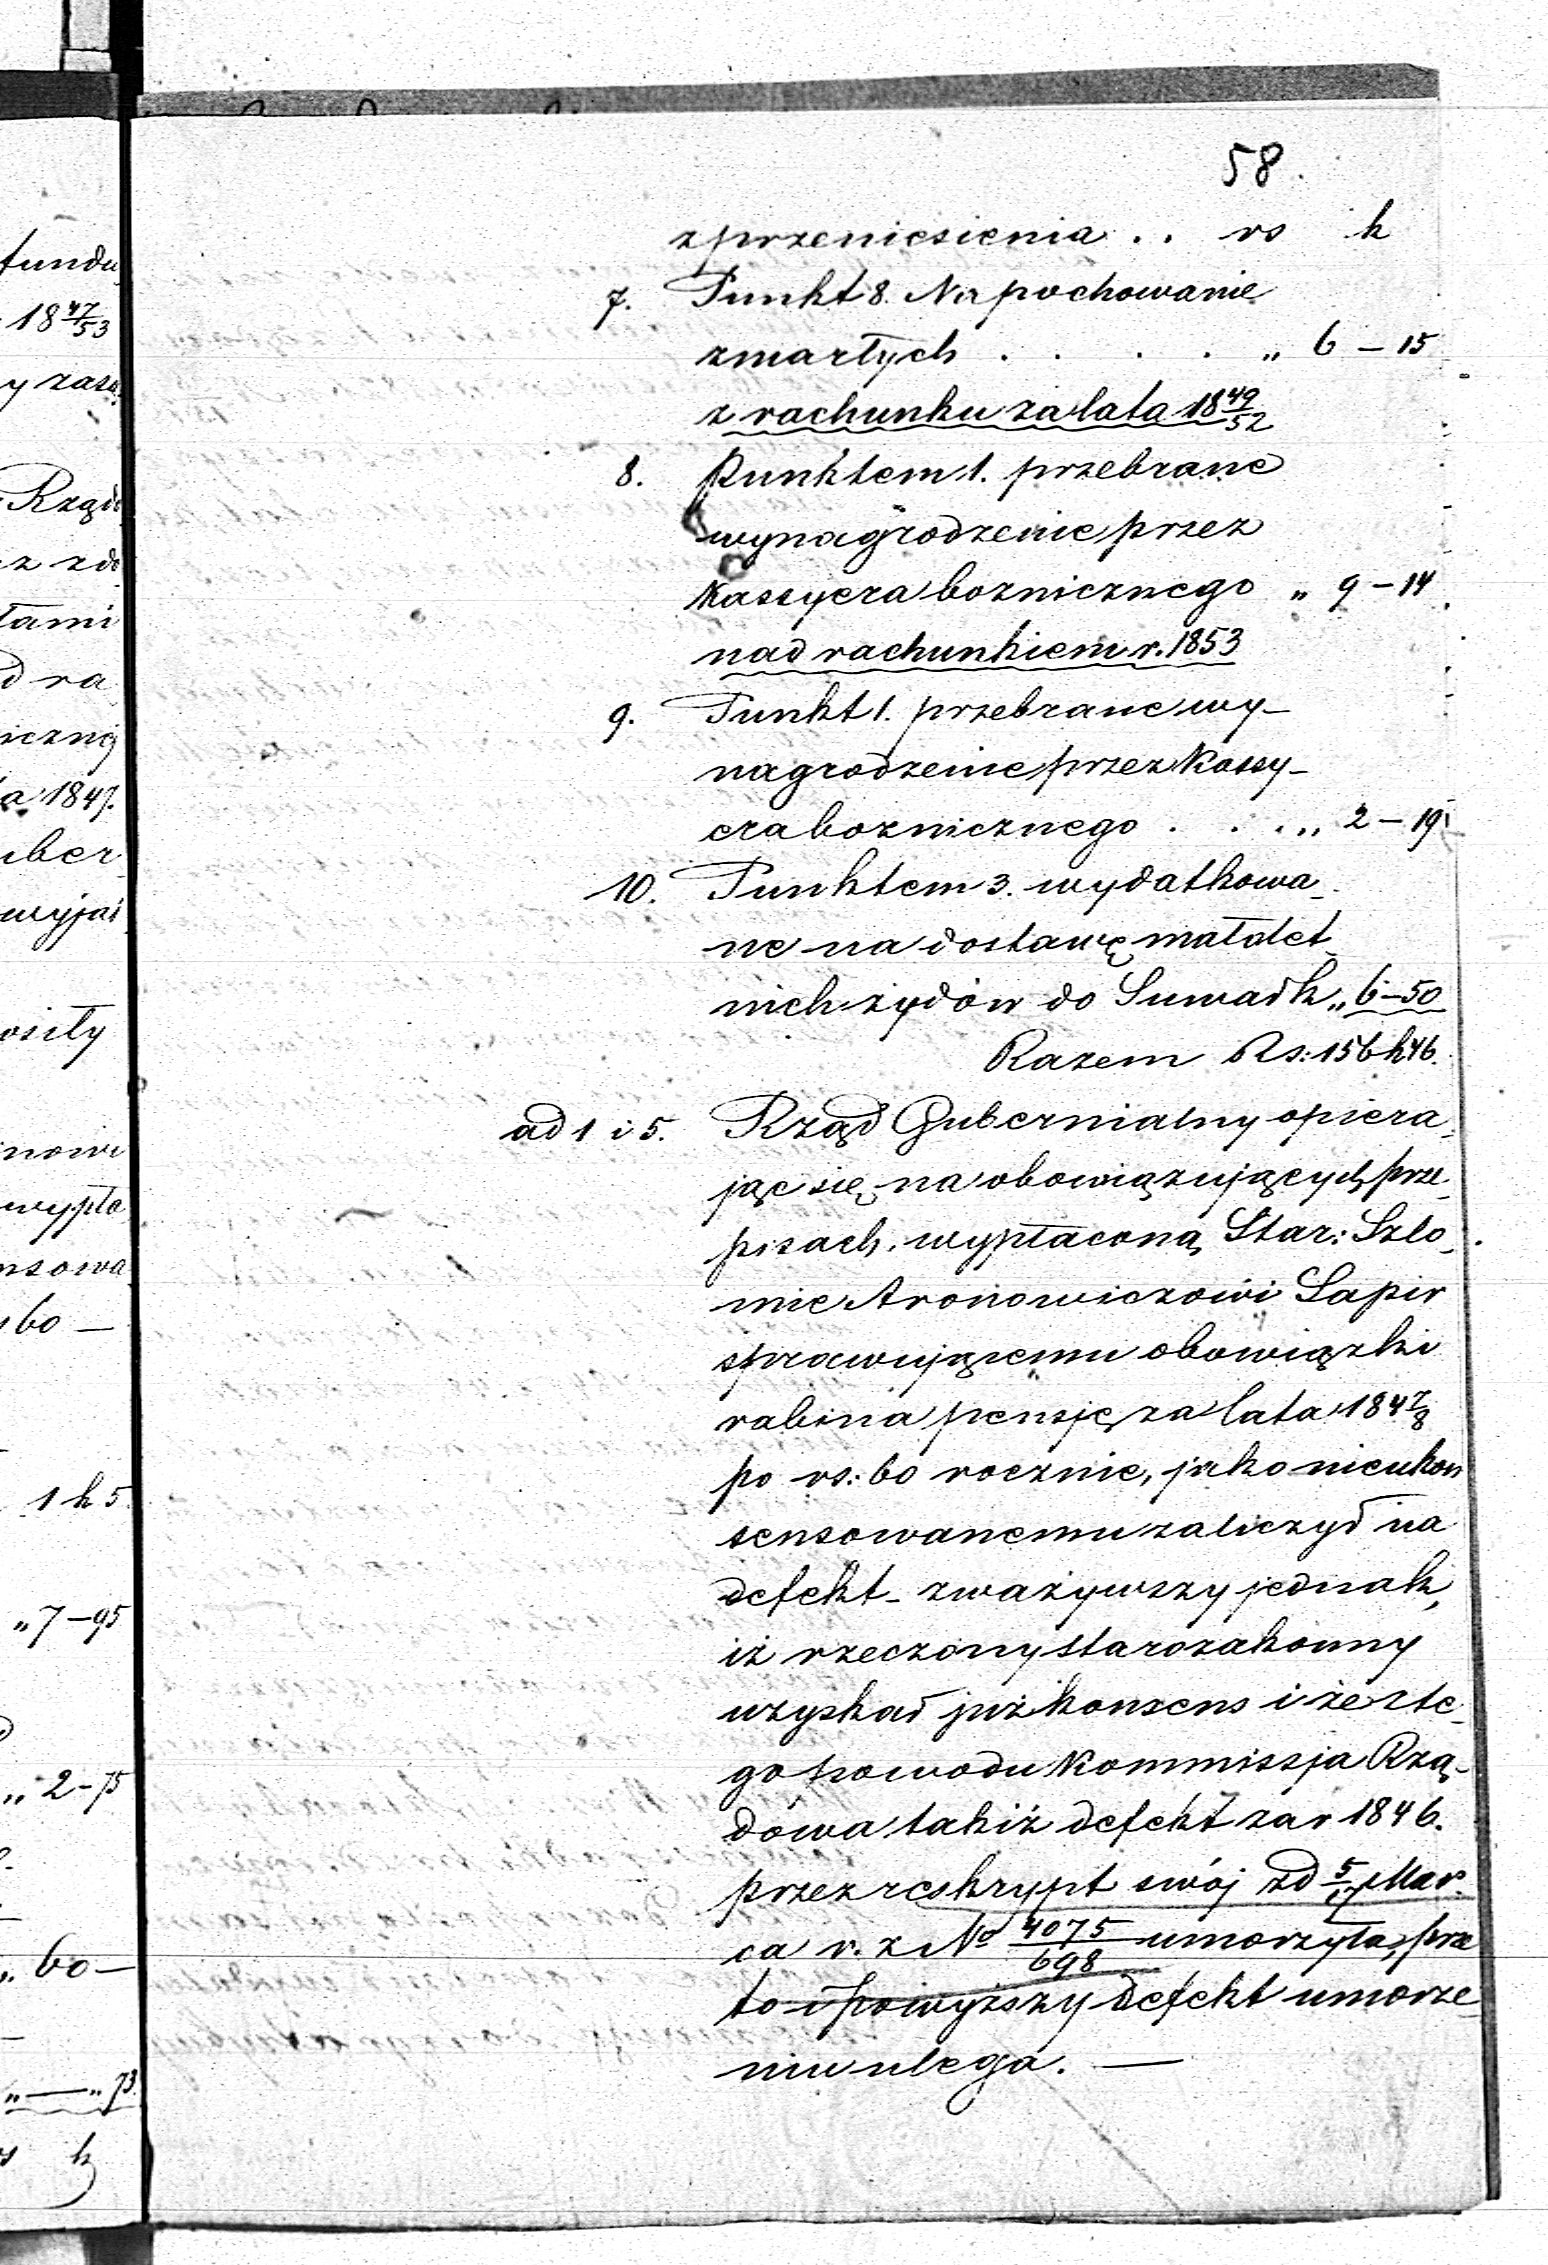 58.
z przeniesienia . . rs k
7. Punkt 8. Na pochowanie
zmarłych . . . . „ 6 – 15
z rachunku za lata 18 49/52
8. Punktem 1. przebrane
wynagrodzenie przez
Kassyera boznicznego „ 9 – 14
nad rachunkiem r. 1853
9. Punkt 1. przebrane wy-
nagrodzenie przez Kassy-
era boznicznego . . . „ 2 – 19
10. Punktem 3. wydatkowa-
ne na dostawę małolet-
nich żydów do Suwałk „ 6–50
Razem Rs: 156 k 46.
ad 1 i 5. Rząd Gubernialny opiera-
jąc się na obowiązujących prze-
pisach, wypłaconą Star: Szlo-
mie Aronowiczowi Sapir
sprawującemu obowiązki
rabina pensję za lata 184 7/8
po rs: 60 rocznie, jako nieukon
sensowanemu zaliczył na
defekt – zważywszy jednak,
iż rzeczony starozakonny
uzyskał już konsens i że z te-
go powodu Kommissja Rzą-
dowa takiż defekt za r 1846.
przez reskrypt swój z d 5/17 Mar-
ca r. z No 4075/698 umorzyła, prze
to i powyższy defekt umorze-
niu ulega. —
fundu
18 47/53
y zasa
Rząd
z zd
łami
d ra
iczney
a 1847.
uber
wyjaś
osiły
nowi
wypła
nsowa
60 —
1 k 5
„ 7–95
„ 2–75
„ 60 —
„ — „ 73.
k